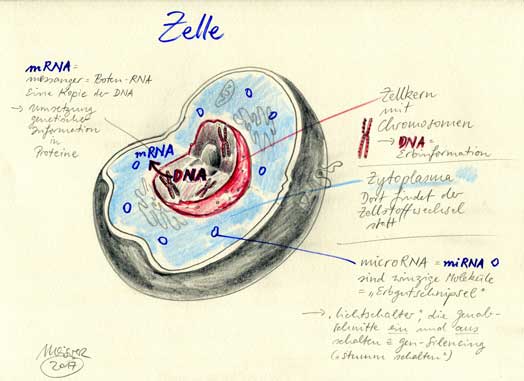 Zelle
mRNA =
messanger = Boten-RNA
Eine Kopie der DNA
→ Umsetzung
genetischer
Information
in
Proteine
mRNA
DNA
Zellkern
mit
Chromosomen
→ DNA =
Erbinformation
Zytoplasma
Dort findet der
Zellstoffwechsel
statt
microRNA = miRNA
sind winzige Moleküle
= „Erbgutschnipsel"
→ „Lichtschalter", die Genab-
schnitte ein und aus
schalten = gen-Silencing
("stumm schalten")
2017